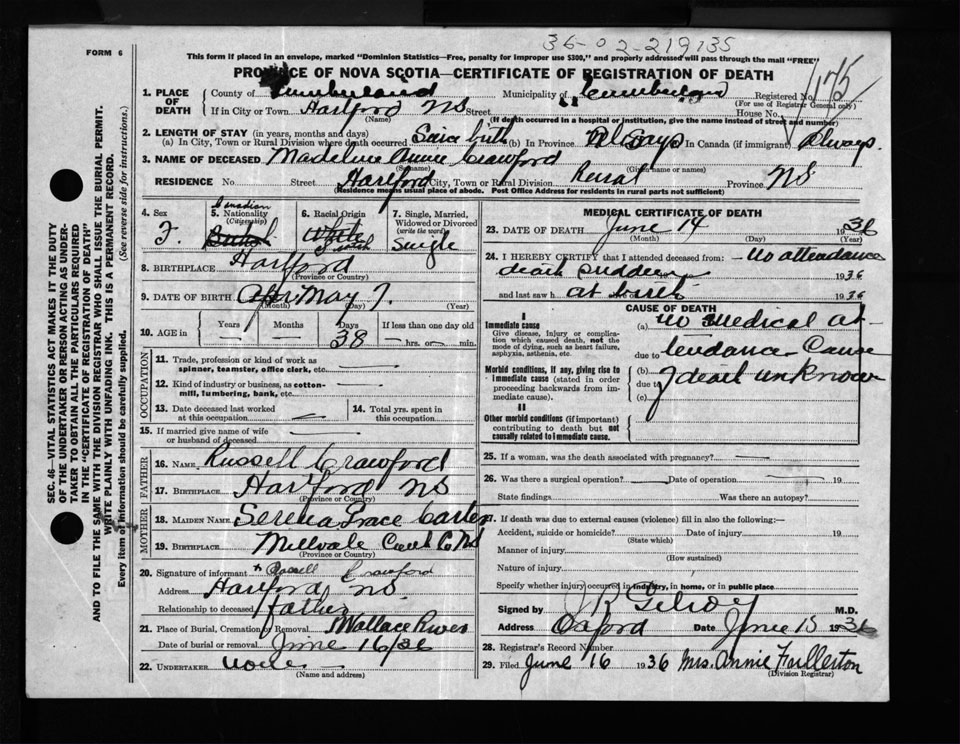 36-02-219735
FORM 6
This form if placed in an envelope, marked "Dominion Statistics—Free, penalty for improper use $300," and properly addressed will pass through the mail "FREE"
PROVINCE OF NOVA SCOTIA—CERTIFICATE OF REGISTRATION OF DEATH
1. PLACE OF DEATH County of Cumberland Municipality of Cumberland Registered No. 175
(For use of Registrar General only)
If in City or Town Hartford NS Street House No.
(Name) (If death occurred in a hospital or institution, give the name instead of street and number)
2. LENGTH OF STAY (in years, months and days)
(a) In City, Town or Rural Division where death occurred Since birth (b) In Province Always In Canada (if immigrant) Always.
3. NAME OF DECEASED Madeline Annie Crawford
(Surname) (Given name or names)
RESIDENCE No. Street Hartford City, Town or Rural Division Rural Province NS
(Residence means usual place of abode. Post Office Address for residents in rural parts not sufficient)
4. Sex F.
5. Nationality (Citizenship) Canadian
6. Racial Origin White
7. Single, Married, Widowed or Divorced (write the word) Single
8. BIRTHPLACE Hartford
(Province or Country)
9. DATE OF BIRTH Apr May 7.
(Month) (Day) (Year)
10. AGE in Years Months Days 38 If less than one day old
hrs. or min.
OCCUPATION
11. Trade, profession or kind of work as spinner, teamster, office clerk, etc.
12. Kind of industry or business, as cotton-mill, lumbering, bank, etc.
13. Date deceased last worked at this occupation
14. Total yrs. spent in this occupation
15. If married give name of wife or husband of deceased
FATHER
16. NAME Russell Crawford
17. BIRTHPLACE Hartford NS
(Province or Country)
MOTHER
18. MAIDEN NAME Serena Grace Carter
19. BIRTHPLACE Millvale Cumb Co NS
(Province or Country)
20. Signature of informant x Russell Crawford
Address Hartford NS.
Relationship to deceased father
21. Place of Burial, Cremation or Removal Wallace River
Date of burial or removal June 16/36
22. UNDERTAKER none
(Name and address)
MEDICAL CERTIFICATE OF DEATH
23. DATE OF DEATH June 14 1936
(Month) (Day) (Year)
24. I HEREBY CERTIFY that I attended deceased from: - no attendance
death sudden 1936
and last saw h at birth 1936
CAUSE OF DEATH
I
Immediate cause
Give disease, injury or complication which caused death, not the mode of dying, such as heart failure, asphyxia, asthenia, etc.
(a) no medical at-
due to tendance Cause
Morbid conditions, if any, giving rise to immediate cause (stated in order proceeding backwards from immediate cause).
(b) of death unknown
due to
(c)
II
Other morbid conditions (if important) contributing to death but not causally related to immediate cause.
25. If a woman, was the death associated with pregnancy?
26. Was there a surgical operation? Date of operation 19
State findings Was there an autopsy?
27. If death was due to external causes (violence) fill in also the following:—
Accident, suicide or homicide? Date of injury 19
(State which)
Manner of injury
(How sustained)
Nature of injury
Specify whether injury occurred in industry, in home, or in public place
Signed by J R Gilroy M.D.
Address Oxford Date June 15 1936
28. Registrar's Record Number
29. Filed June 16 1936 Mrs. Annie Fullerton
(Division Registrar)
SEC. 46—VITAL STATISTICS ACT MAKES IT THE DUTY
OF THE UNDERTAKER OR PERSON ACTING AS UNDER-
TAKER TO OBTAIN ALL THE PARTICULARS REQUIRED
IN THE "CERTIFICATE OF REGISTRATION OF DEATH"
AND TO FILE THE SAME WITH THE DIVISION REGISTRAR WHO SHALL ISSUE THE BURIAL PERMIT.
WRITE PLAINLY WITH UNFADING INK. THIS IS A PERMANENT RECORD.
Every item of information should be carefully supplied. (See reverse side for instructions.)